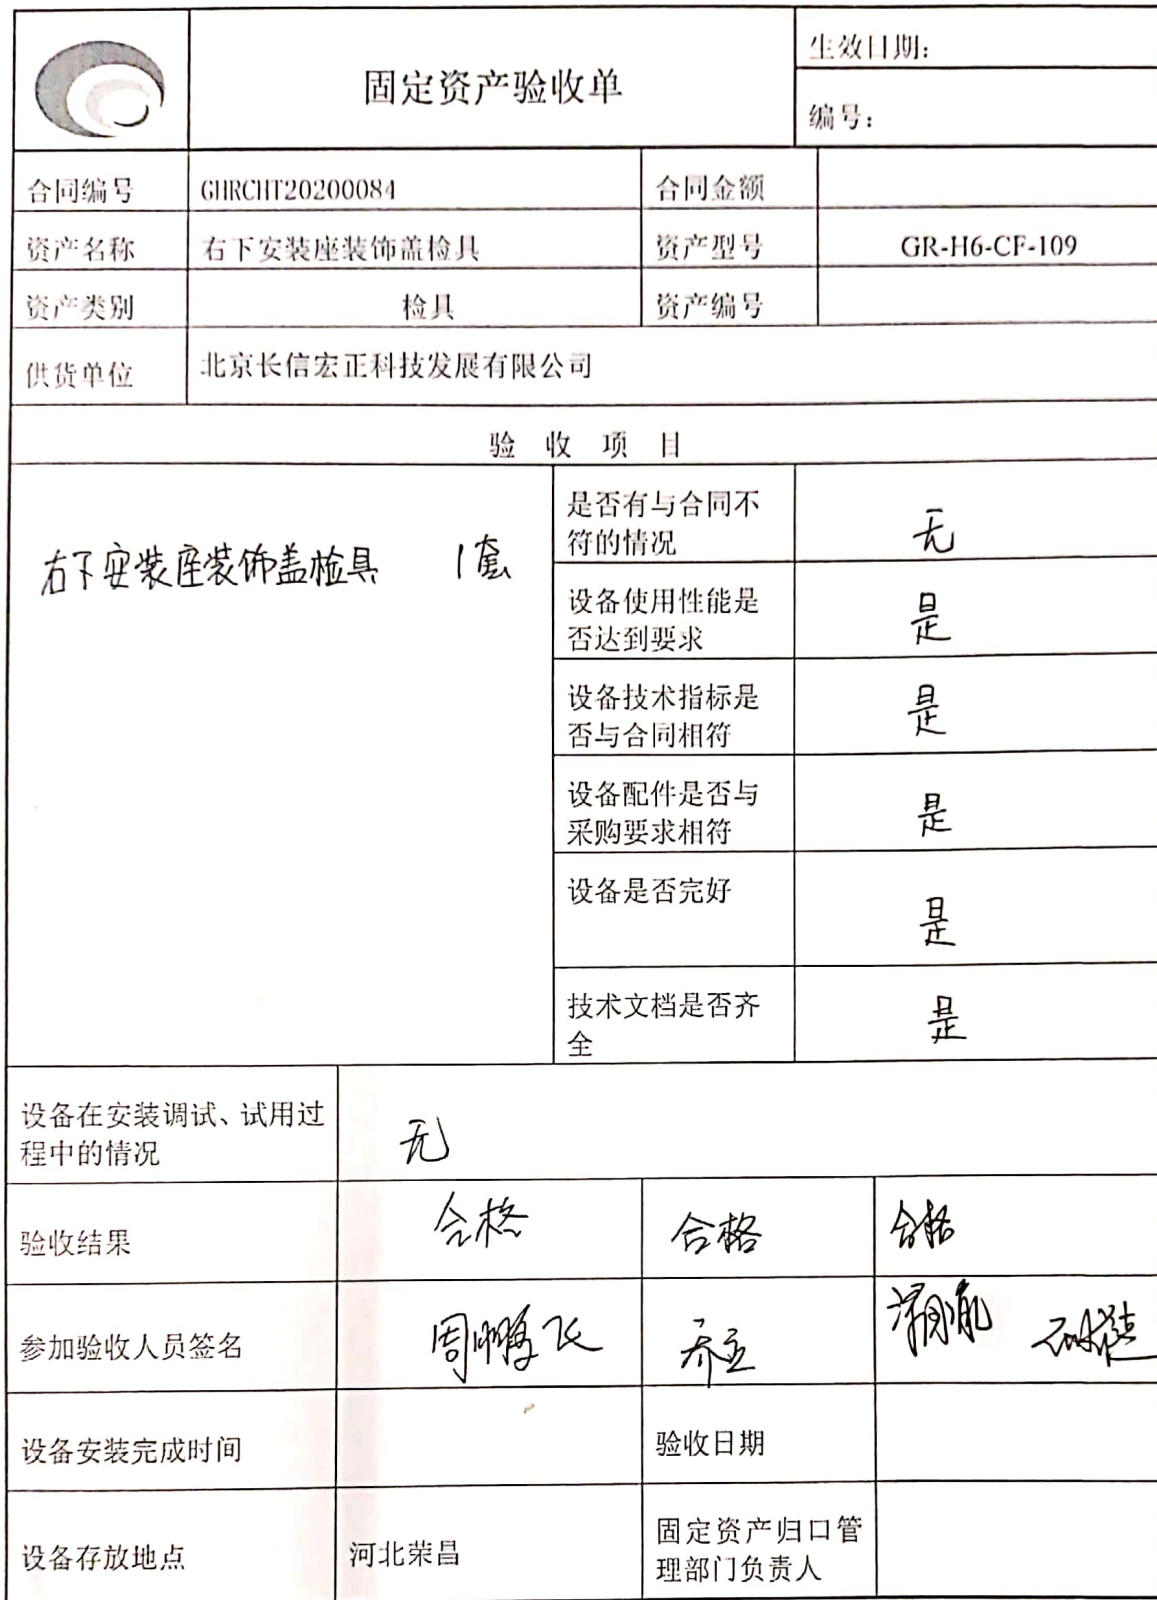 固定资产验收单
生效日期：
编号：
合同编号 GHRCHT20200084 合同金额
资产名称 右下安装座装饰盖检具 资产型号 GR-H6-CF-109
资产类别 检具 资产编号
供货单位 北京长信宏正科技发展有限公司
验 收 项 目
右下安装座装饰盖检具 1套
是否有与合同不
符的情况
无
设备使用性能是
否达到要求
是
设备技术指标是
否与合同相符
是
设备配件是否与
采购要求相符
是
设备是否完好
是
技术文档是否齐
全
是
设备在安装调试、试用过
程中的情况
无
验收结果 合格 合格 合格
参加验收人员签名 周鹏飞
设备安装完成时间 验收日期
设备存放地点 河北荣昌
固定资产归口管
理部门负责人